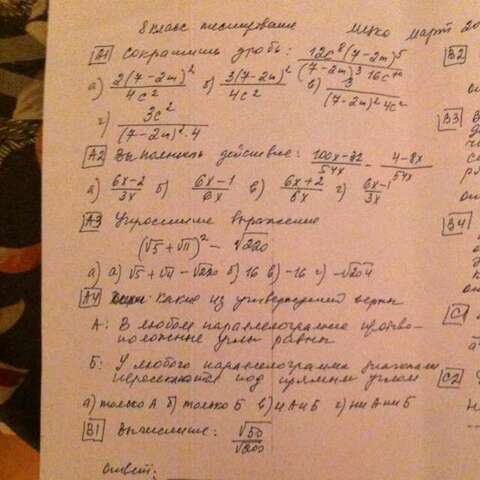 8 класс тестирование март 20
A1 Сократить дробь: 12c⁸(7-2m)⁵ / (7-2m)³·16c¹⁰
а) 2(7-2m)² / 4c² б) 3(7-2m)² / 4c² в) 3 / (7-2m)²·4c²
г) 3c² / (7-2m)²·4
A2 Выполнить действие: 100x-32 / 54x - 4-8x / 54x
а) 6x-2 / 3x б) 6x-1 / 6x в) 6x+2 / 6x г) 6x-1 / 3x
A3 Упростите выражение
(√5 + √11)² - √220
а) а) √5+√11-√220 б) 16 в) -16 г) -√204
A4 Какие из утверждений верны
А: В любом параллелограмме противо-
положные углы равны
Б: У любого параллелограмма диагонали
пересекаются под прямым углом
а) только А б) только Б в) и А и Б г) ни А ни Б
B1 Вычислите: √50 / √200
Ответ:
B2
B3
B4
C1
C2